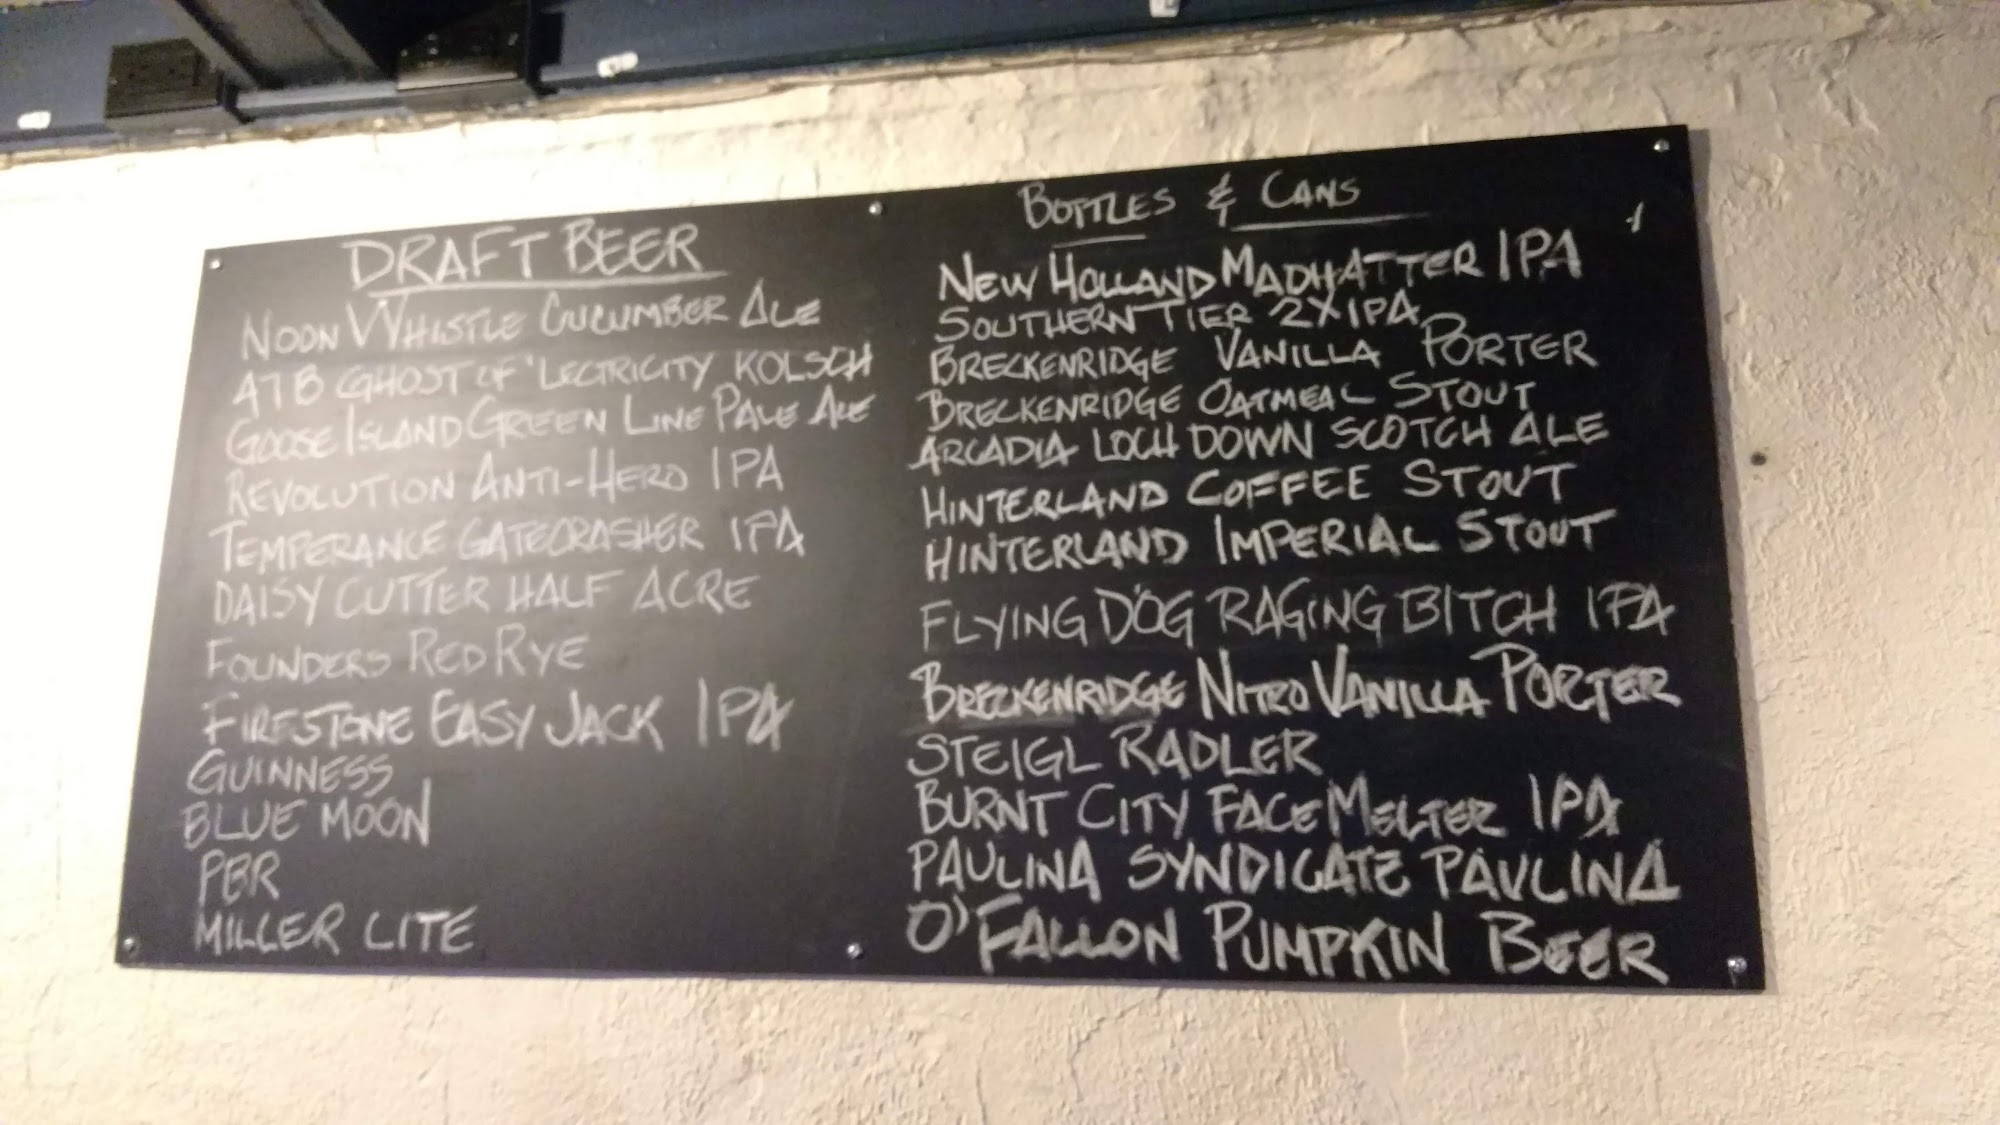 DRAFT BEER
NOON WHISTLE CUCUMBER ALE
ATB GHOST OF 'LECTRICITY KOLSCH
GOOSE ISLAND GREEN LINE PALE ALE
REVOLUTION ANTI-HERO IPA
TEMPERANCE GATECRASHER IPA
DAISY CUTTER HALF ACRE
FOUNDERS RED RYE
FIRESTONE EASY JACK IPA
GUINNESS
BLUE MOON
PBR
MILLER LITE
BOTTLES & CANS
NEW HOLLAND MADHATTER IPA
SOUTHERN TIER 2XIPA
BRECKENRIDGE VANILLA PORTER
BRECKENRIDGE OATMEAL STOUT
ARCADIA LOCH DOWN SCOTCH ALE
HINTERLAND COFFEE STOUT
HINTERLAND IMPERIAL STOUT
FLYING DOG RAGING BITCH IPA
BRECKENRIDGE NITRO VANILLA PORTER
STEIGL RADLER
BURNT CITY FACE MELTER IPA
PAULINA SYNDICATE PAULINA
O'FALLON PUMPKIN BEER